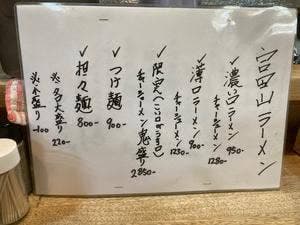 宮西山ラーメン
✓濃口ラーメン 950-
チャーシューメン 1280-
✓薄口ラーメン 900-
チャーシューメン 1230-
✓限定(こい口のうす口)
チャーシューメン鬼盛り 2850-
✓つけ麺 900-
✓担々麺 800-
※名大盛り 220-
※小盛り -100